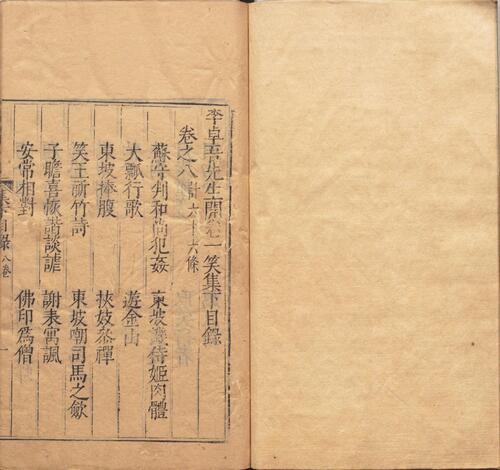 李卓吾先生開卷一笑集下目錄
卷之八 計六十六條
蘇守判和尚犯姦 東坡戲侍姬肉體
大瓢行歌 遊金山
東坡捧腹 挾妓參禪
笑王祈竹詩 東坡嘲司馬之歛
子瞻喜恢諧談謔 謝表寓諷
安常相對 佛印爲僧
目錄 八卷 一